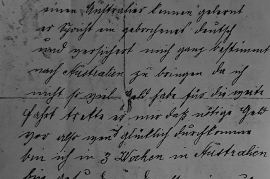 einen Australier kennen gelernt
er spricht ein gebrochenes deutsch
und versichert mich ganz bestimmt
nach Australien zu bringen da ich
nicht so viel Geld habe für die weite
Fahrt er mir das nötige Geld
vor also wenn glücklich durchkommen
bin ich in 3 Wochen in Australien